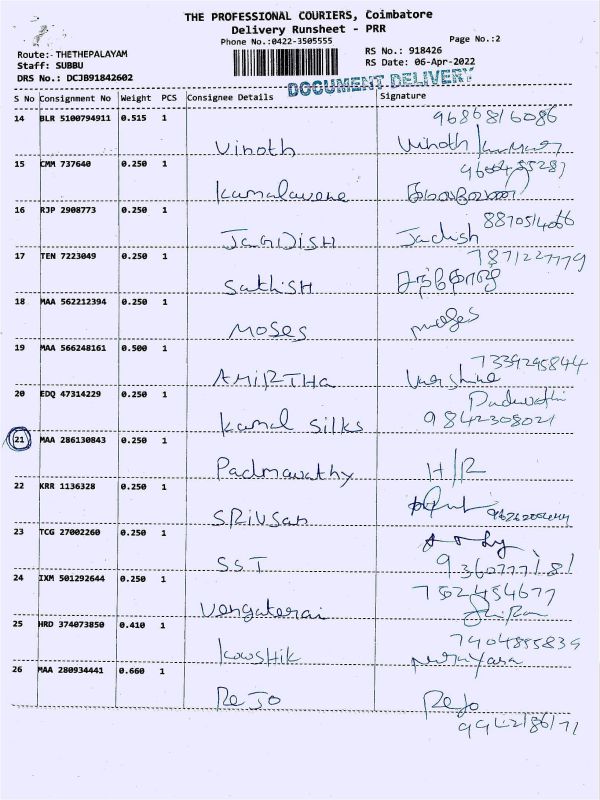 THE PROFESSIONAL COURIERS, Coimbatore
Delivery Runsheet - PRR
Phone No.:0422-3505555
Page No.:2
Route:- THETHEPALAYAM
RS No.: 918426
Staff: SUBBU
RS Date: 06-Apr-2022
DRS No.: DCJB91842602
DOCUMENT DELIVERY
S No Consignment No Weight PCS Consignee Details Signature
14 BLR 5100794911 0.515 1
Vinoth Vinoth
15 CMM 737640 0.250 1
Kamalavene
16 RJP 2908773 0.250 1
JAGDISH Jadish
17 TEN 7223049 0.250 1 7871227779
SathISH
18 MAA 562212394 0.250 1
MOSES moses
19 MAA 566248161 0.500 1 7339295844
AMIRTHA
20 EDQ 47314229 0.250 1
Kamal Silks 9842308021
21 MAA 286130843 0.250 1
Padmavathy H/R
22 KRR 1136328 0.250 1
23 TCG 27002260 0.250 1
SST
24 IXM 501292644 0.250 1 7502454677
Vengaterai
25 HRD 374073850 0.410 1 7904855839
Kowshik
26 MAA 280934441 0.660 1
ReJo Rejo